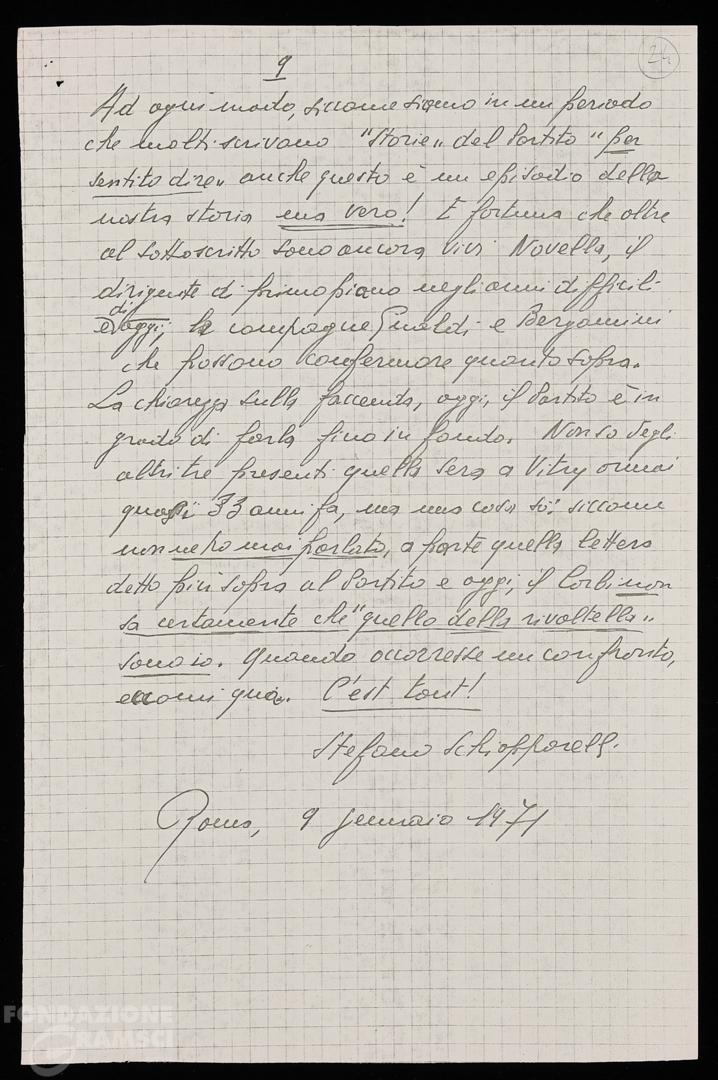 9
24
Ad ogni modo, siccome siamo in un periodo
che molti scrivono "Storie" del Partito "per
sentito dire" anche questo è un episodio della
nostra storia ma vero! È fortuna che oltre
al sottoscritto sono ancora vivi Novella, il
dirigente di primo piano negli anni difficili
di
e oggi, le compagne Gualdi e Bergamini
che possono confermare quanto sopra.
La chiarezza sulla faccenda, oggi, il Partito è in
grado di farla fino in fondo. Non so degli
altri tre presenti quella sera a Vitry ormai
quasi 33 anni fa, ma una cosa so: siccome
non ne ho mai parlato, a parte quella lettera
detto più sopra al Partito e oggi, il Corbi non
sa certamente che "quello della rivoltella"
sono io. Quando occorresse un confronto,
eccomi qua. C'est tout!
Stefano Schiapparelli.
Roma, 9 gennaio 1971
FONDAZIONE
GRAMSCI